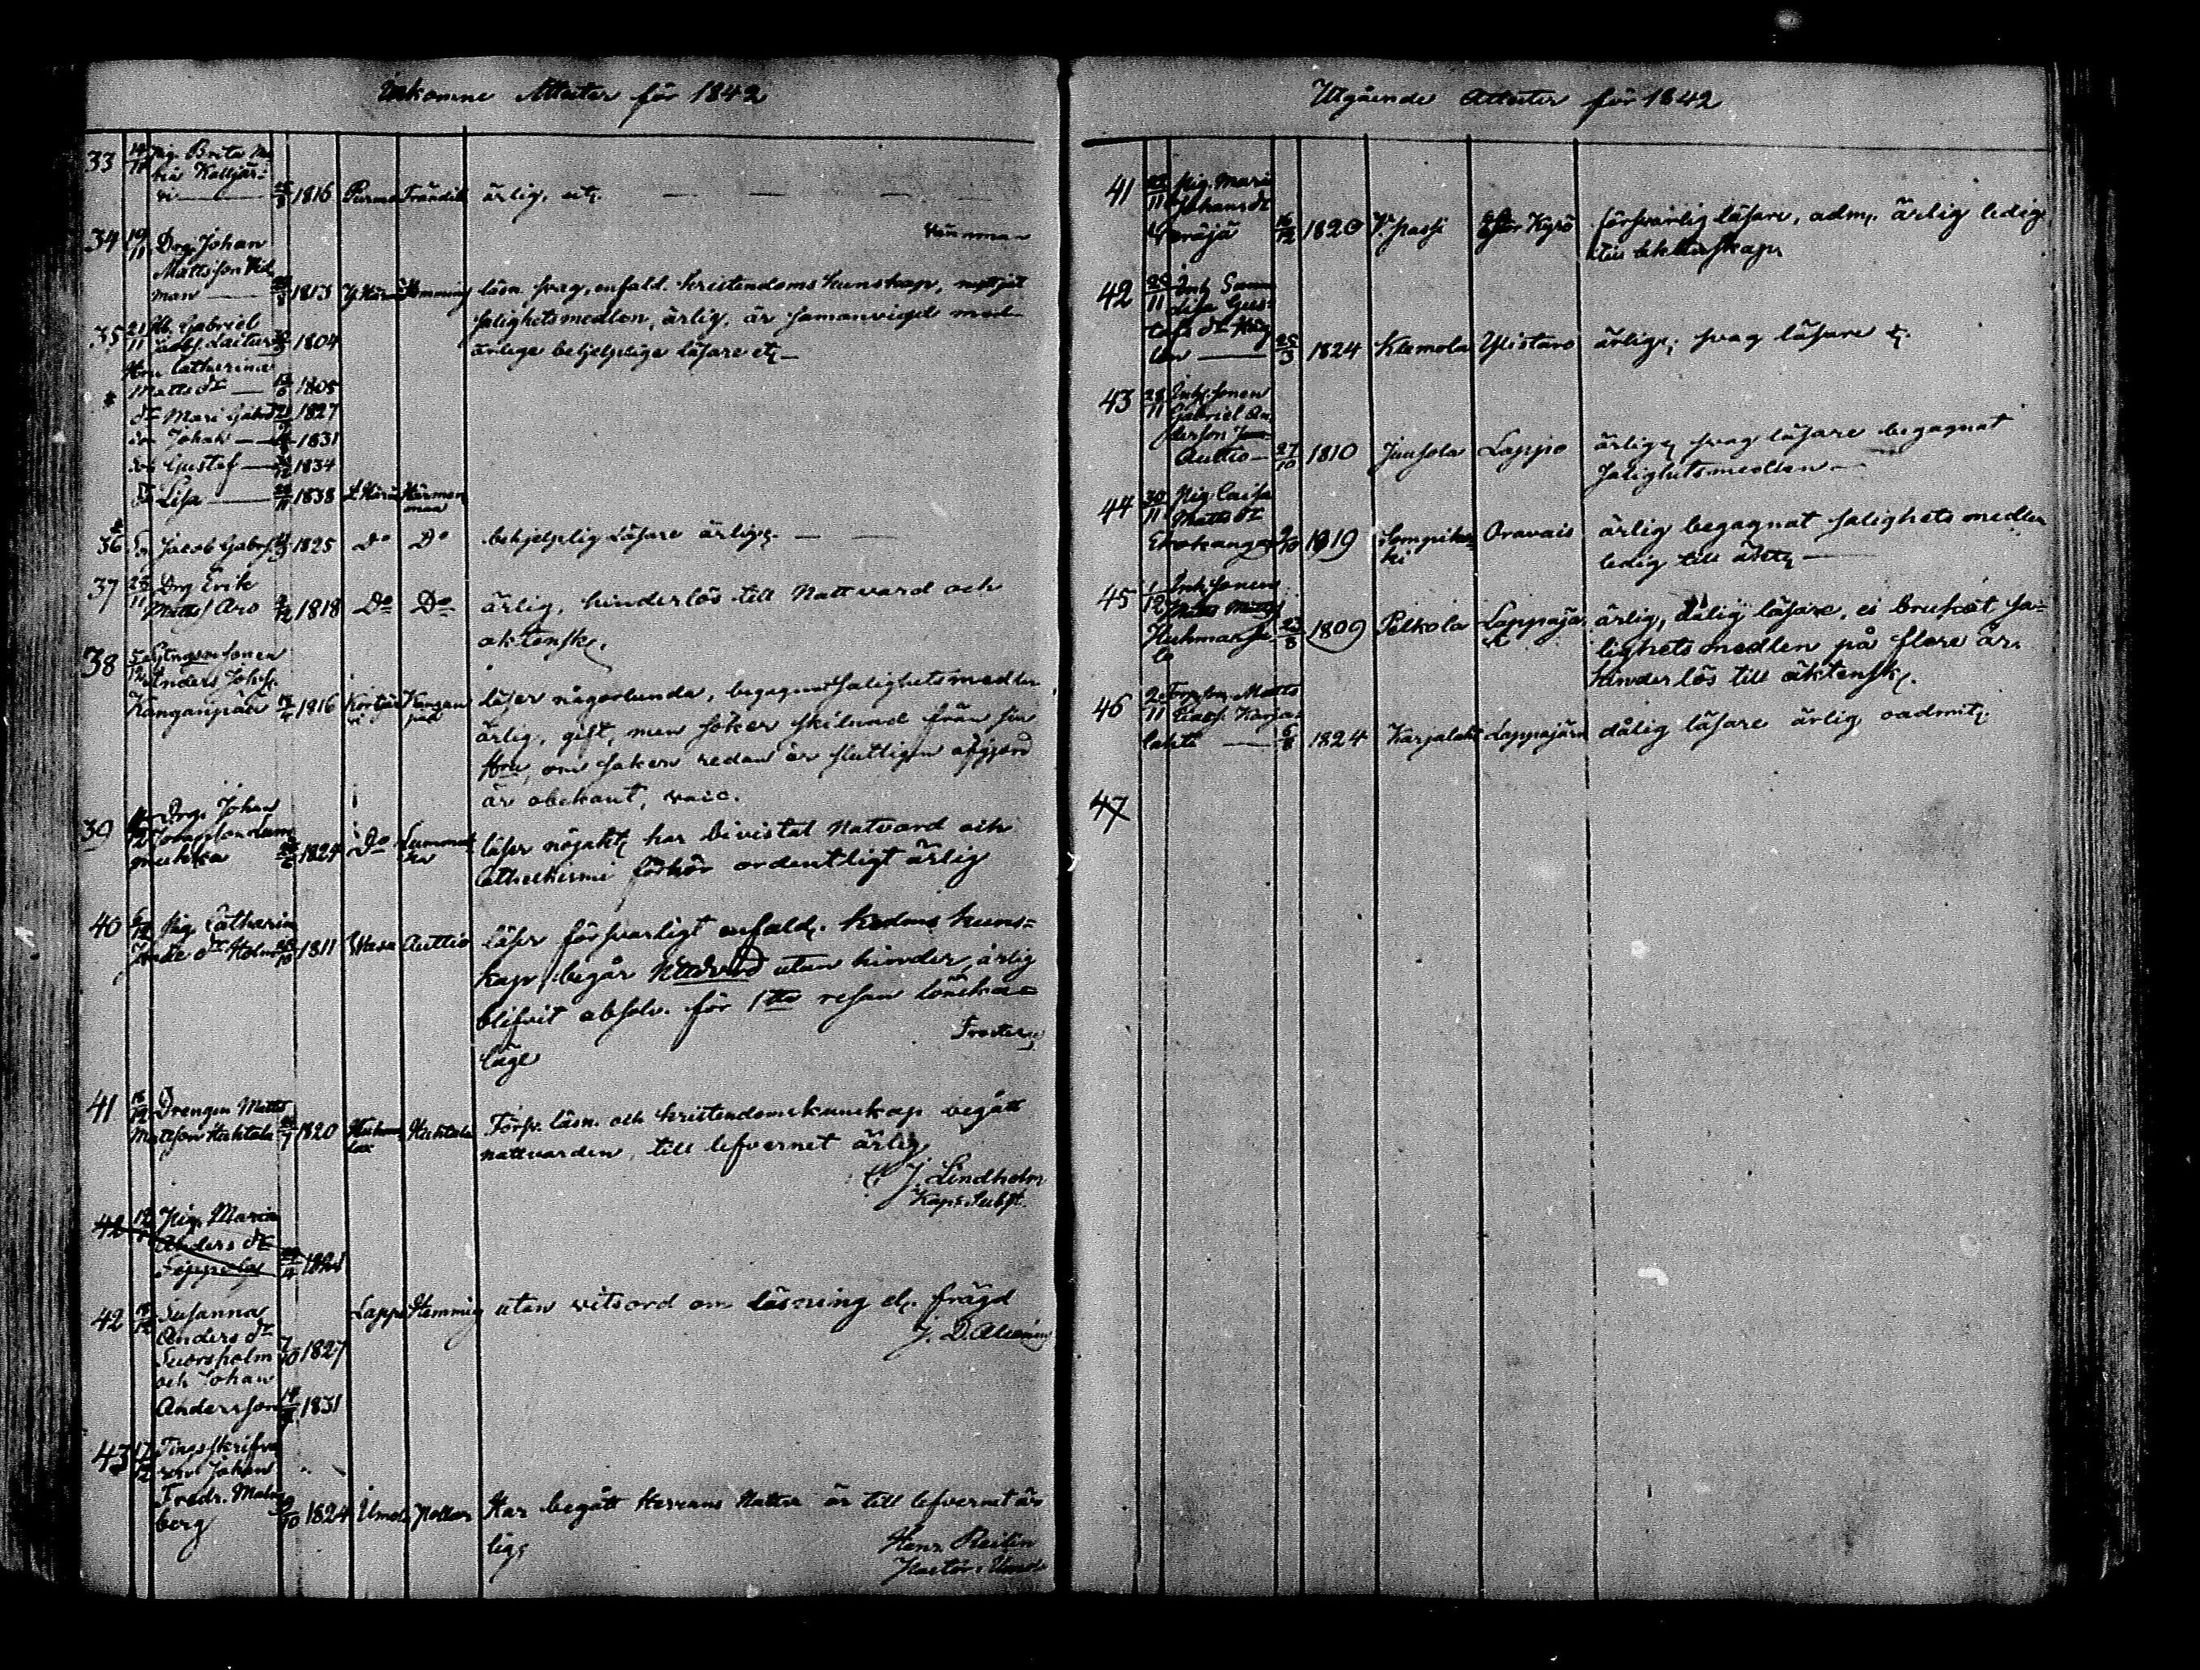 Inkomne Attester för 1842
33 14/11 Pig. Brita Ma
ria Kalljär
vi 1816 Purmo Trändik ärlig, etc.
34 19/11 Drg. Johan
Mattsson Wid
man 1813 Y Härmä Hemming läsn. svag, enfald. kristendoms kunskap, nyttjat
35 21/11 Gabriel 1804 salighetsmedlen, ärlig, är samanvigd med
ärlige behjelplige läsare etc
Hru Catharina
Matts dr 1805
dr Mari Gabr dr 1827
son Johan 1831
son Gustaf 1834
dr Lisa 1838 L Härmä Härmen
maa
36 Son Jacob Gabrs. 1825 Do Do behjelplig läsare ärlig
37 23/11 Drg Erik
Matts. Aro 1818 Do Do ärlig, hinderlös till Nattvard och
äktensk.
38 5/12 sonen
Anders Johs.
Kanganpää 1816 Kortjär
vi Kangan
pää läser någorlunda, begagnat salighetsmedlen
ärlig, gift, men söker skilnad från sin
Hru, om saken redan är slutligen afgjord
är obekant, vacc.
39 Drg. Johan
Lum
mukka 1824 Do Lummuk
ka läser nöjakt. har bivistat Natvard och
Catheckismi förhör ordentligt ärlig
40 Pig. Catharina
dr Holm 1811 Wasa Auttio läser försvarligt enfald. kedoms kuns=
kap begår Nattvard utan hinder, ärlig
blifvit absolv. för 1sta resan löneka
läge
41 16/12 Drengen Matts
Mattsson Huhtala 1820 Huhtala Försv. läsn. och kristendomskunskap begått
nattvarden, till lefvernet ärlig
J. Lindholm
Kap. Subst.
42 Pig. Maria
Anders dr
Seppälä
42 Susanna
Anders dr
Suorsholm 7/10 1827
och Johan
Andersson 1831 Lappo Hemming utan vitsord om läsning el. frägd
J. D. Alcenius
43 17/12 Tingsskrifva
ren Johan
Fredr. Malm
berg 1824 Umeå Har begått Herrans Nattv. är till lefvernet är
lig
Henr. Reilin
Pastor i Umeå
Utgående Attester för 1842
41 Pig. Maria
Johans dr
1820 Passi Stor Kyro försvarlig läsare, adm. ärlig ledig
till äktenskap
42 28/11 Inh. Sanna
Lisa Gus=
tafs dr Häg
lan 25/3 1824 Klemola Ylistaro ärlig, svag läsare etc.
43 28/11 Inh. sonen
Gabriel An
dersson
Auttio 27/10 1810 Juusola Lappo ärlig, svag läsare begagnat
salighetsmedlen
44 30/11 Pig Caisa
Matts dr
1819 Lompikos
ki Oravais ärlig begagnat salighets medlen
ledig till äkt.
45 1/12 Inh sonen
Matts Matts.
Huhmarsa
lo 23/8 1809 Pelkola Lappajär
vi ärlig, dålig läsare, ej brukat sa=
lighets medlen på flere år.
hinderlös till äktensk.
46 2/11 Torpson Matts
Karja
lahti 6/8 1824 Karjalaht Lappajärvi dålig läsare ärlig, oadmit.
47